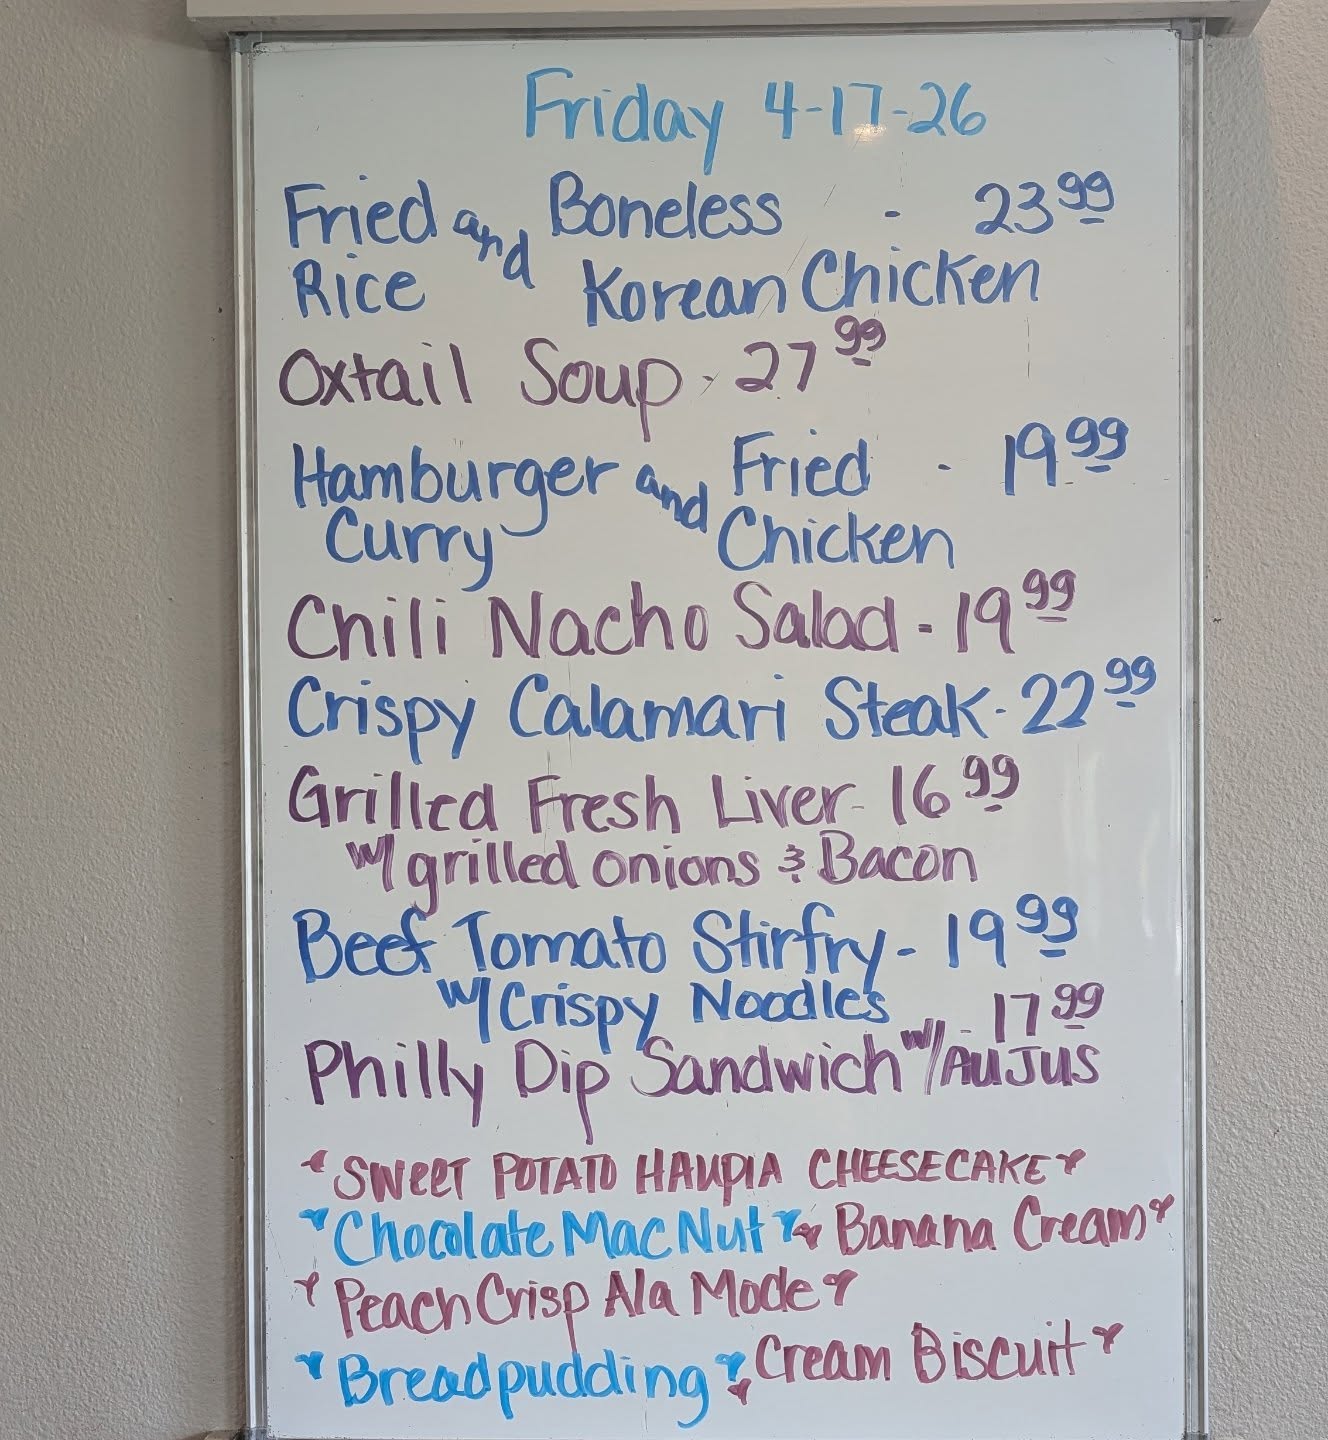 Friday 4-17-26
Fried and Boneless - 23 99
Rice Korean Chicken
Oxtail Soup - 27 99
Hamburger and Fried - 19 99
Curry Chicken
Chili Nacho Salad - 19 99
Crispy Calamari Steak - 22 99
Grilled Fresh Liver - 16 99
w/ grilled onions & Bacon
Beef Tomato Stirfry - 19 99
w/ Crispy Noodles
Philly Dip Sandwich w/ AUJUS - 17 99
SWEET POTATO HAUPIA CHEESECAKE
Chocolate Mac Nut Banana Cream
Peach Crisp Ala Mode
Breadpudding Cream Biscuit